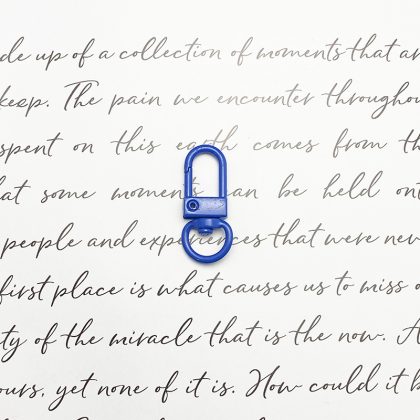 de up of a collection of moments that ar
keep. The pain we encounter throughou
spent on this earth comes from th
at some moments can be held ont
people and experiences that were nev
first place is what causes us to miss o
ty of the miracle that is the now. A
ours, yet none of it is. How could it b